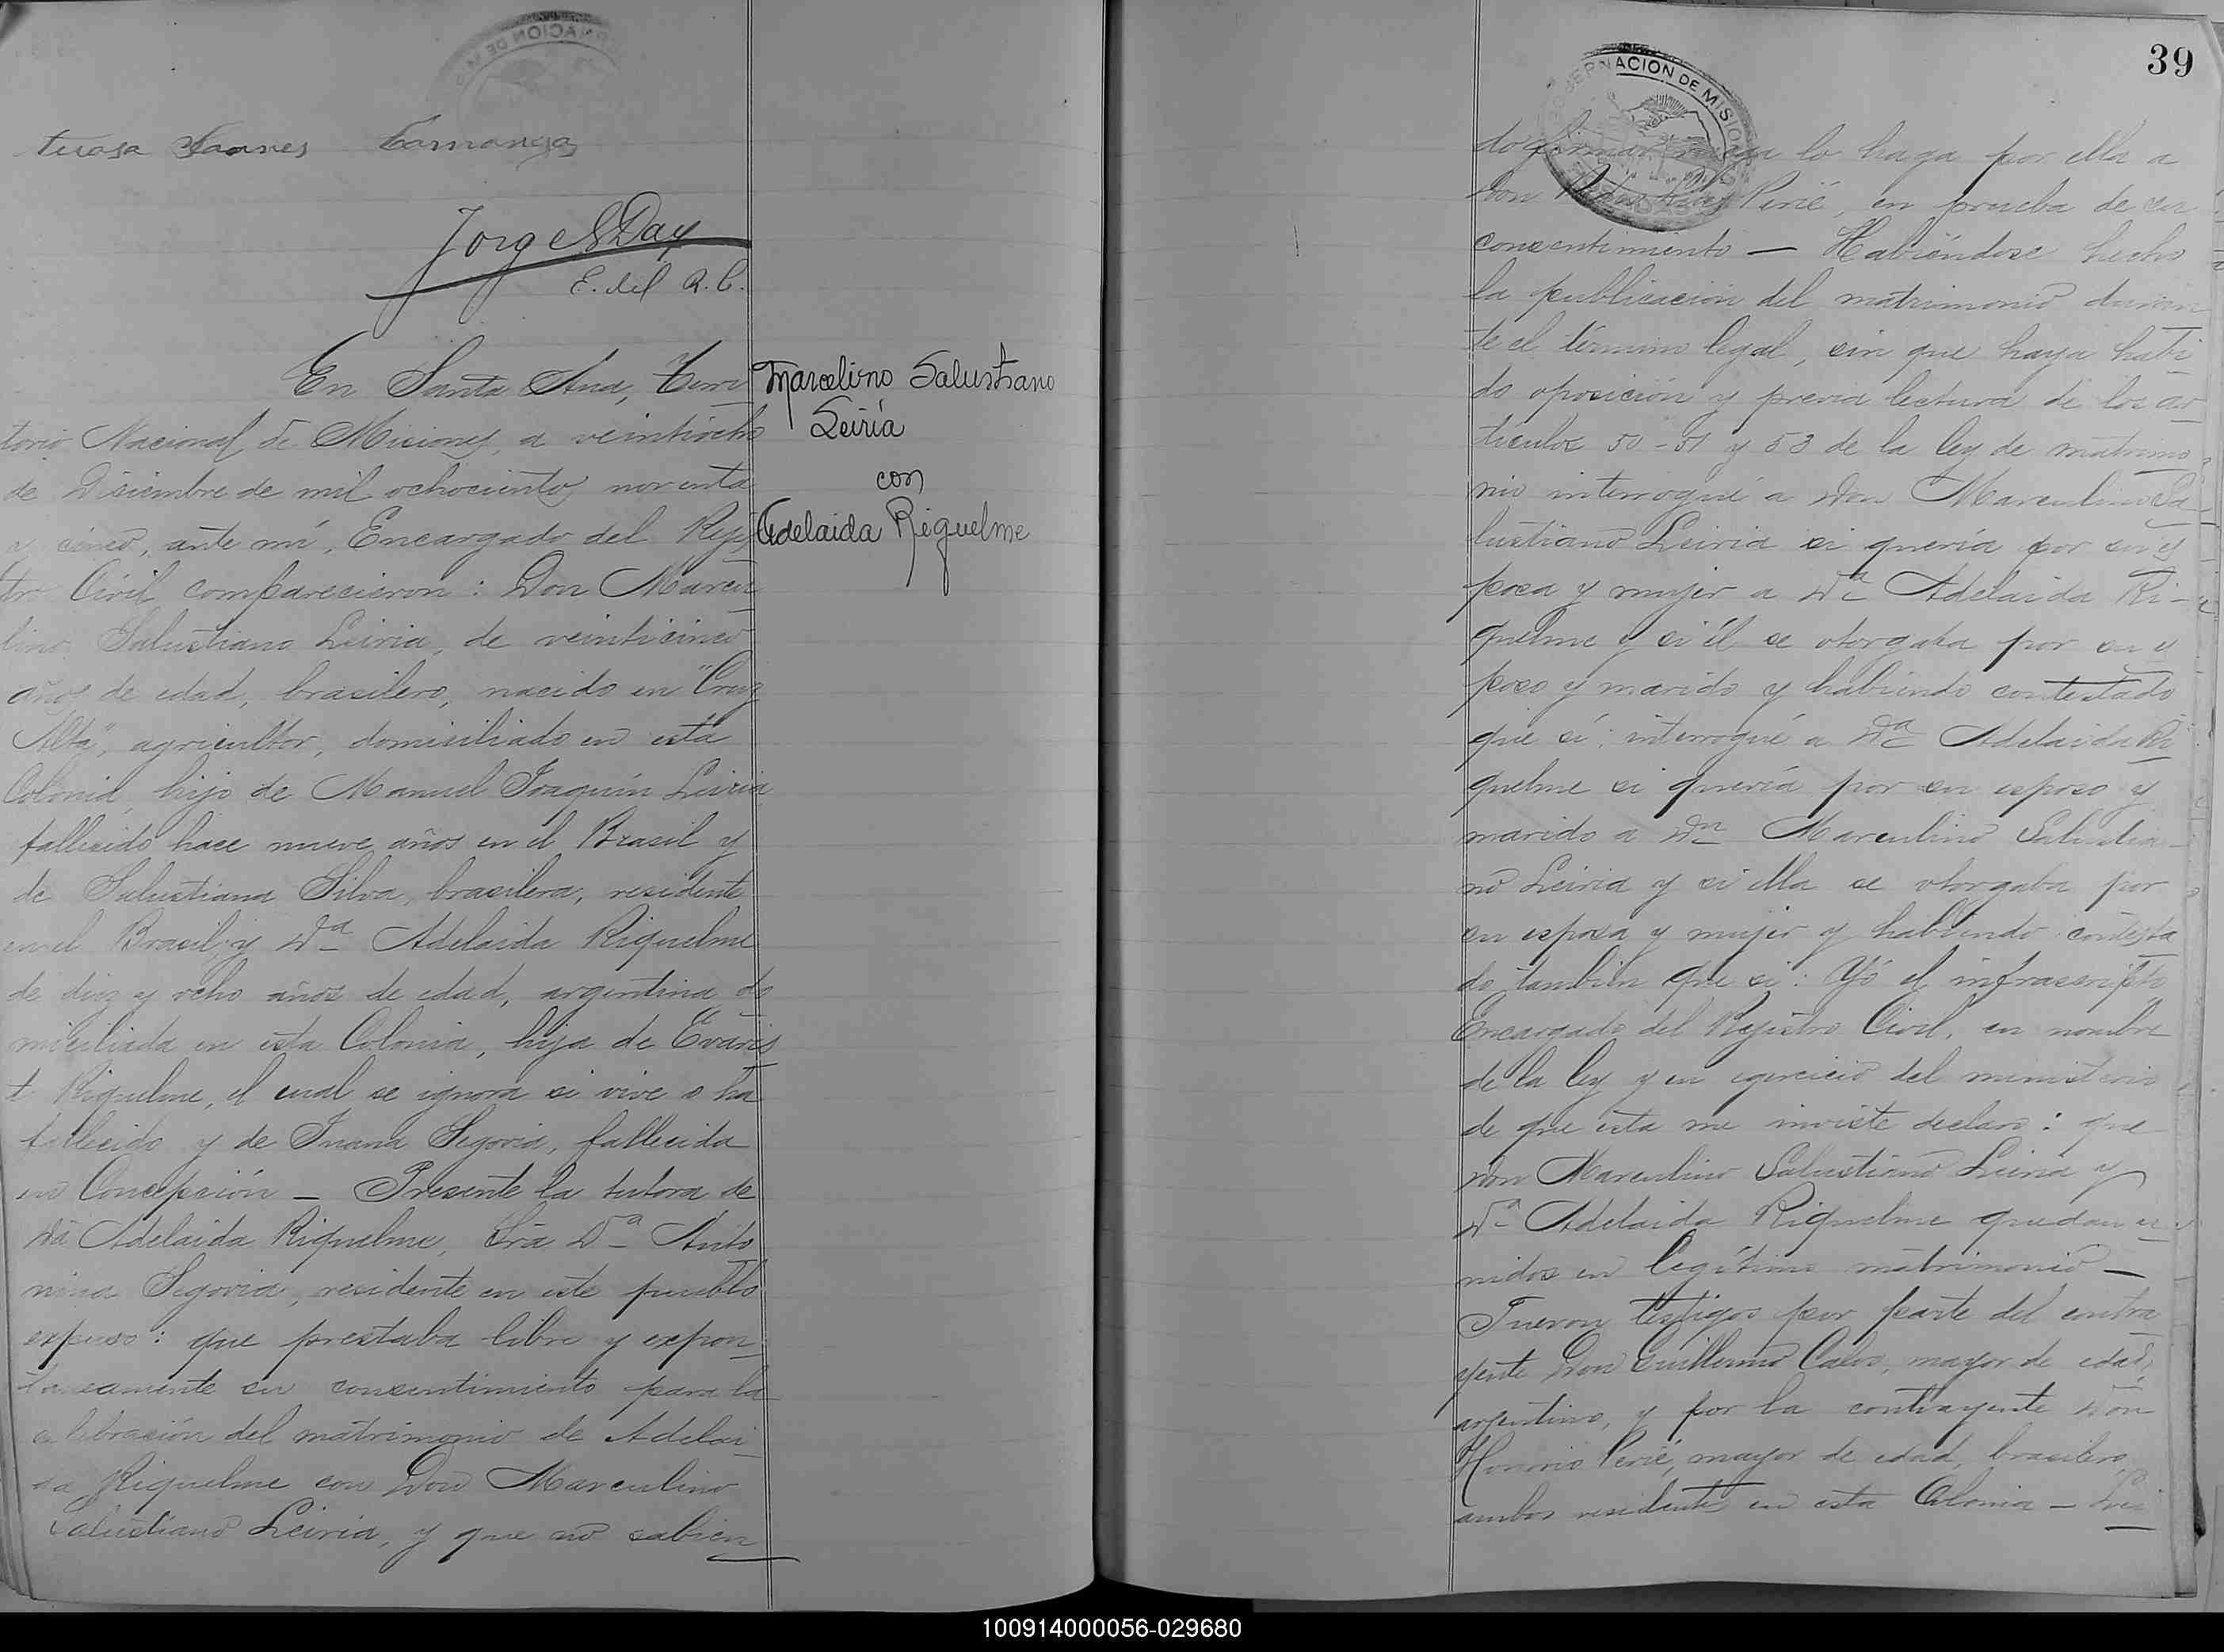 Camargo
Jorge S Day
E. del R. C.
En Santa Ana, Terri
torio Nacional de Misiones, a veintiocho
de Diciembre de mil ochociento noventa
y cinco, ante mí, Encargado del Regis
tro Civil comparecieron: Don Marcu
lino Salustiano Leiria, de veinticinco
años de edad, brasilero, nacido en "Cruz
Alta", agricultor, domisiliado en esta
Colonia, hijo de Manuel Joaquín Leiria
fallecido hace nueve años en el Brasil y
de Salustiana Silva, brasilera, residente
en el Brasil; y Dª Adelaida Riquelme
de diez y ocho años de edad, argentina, do
miciliada en esta Colonia, hija de Evaris
to Riquelme, el cual se ignora si vive o ha
fallecido y de Juana Segovia, fallecida
en Concepción — Presente la tutora de
Dª Adelaida Riquelme, Sra Dª Anto
nina Segovia, residente en este pueblo
expuso: que prestaba libre y expon
taneamente su consentimiento para la
celebración del matrimonio de Adelai
da Riquelme con Don Marculino
Salustiano Leiria, y que no sabien
Marcelino Salustiano
Leiría
con
Adelaida Riquelme
39
GOBERNACION DE MISIONES
do firmar ruega lo haga por ella a
Don Perié, en prueba de su
consentimiento — Habiéndose hecho
la publicación del matrimonio duran
te el término legal, sin que haya habi
do oposición y previa lectura de los ar
tículos 50-51 y 53 de la ley de matrimo
nio interrogué a Don Marculino Sa
lustiano Leiria si quería por su es
posa y mujer a Dª Adelaida Ri-
quelme y si él se otorgaba por su es
poso y marido y habiendo contestado
que sí; interrogué a Dª Adelaida Ri
quelme si quería por su esposo y
marido a Dn Marculino Salustia-
no Leiria y si ella se otorgaba por
su esposa y mujer y habiendo contesta
do tambien que si: Yó el infrascripto
Encargado del Registro Civil, en nombre
de la ley y en egercicio del ministerio
de que esta me inviste declaro: que
Don Marculino Salustiano Leiria y
Dª Adelaida Riquelme quedan u
nidos en legítimo matrimonio —
Fueron testigos por parte del contra
yente Don Guillermo Calvo, mayor de edad,
argentino, y por la contrayente Don
Honorio Perié, mayor de edad, brasilero,
ambos residente en esta Colonia — Leí
100914000056-029680